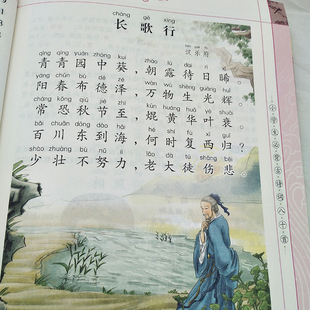 cháng gē xíng
长歌行
汉乐府
qīng qīng yuán zhōng kuí zhāo lù dài rì xī
青青园中葵，朝露待日晞。
yáng chūn bù dé zé wàn wù shēng guāng huī
阳春布德泽，万物生光辉。
cháng kǒng qiū jié zhì kūn huáng huā yè shuāi
常恐秋节至，焜黄华叶衰。
bǎi chuān dōng dào hǎi hé shí fù xī guī
百川东到海，何时复西归？
shào zhuàng bù nǔ lì lǎo dà tú shāng bēi
少壮不努力，老大徒伤悲。
小学生必背古诗词八十首